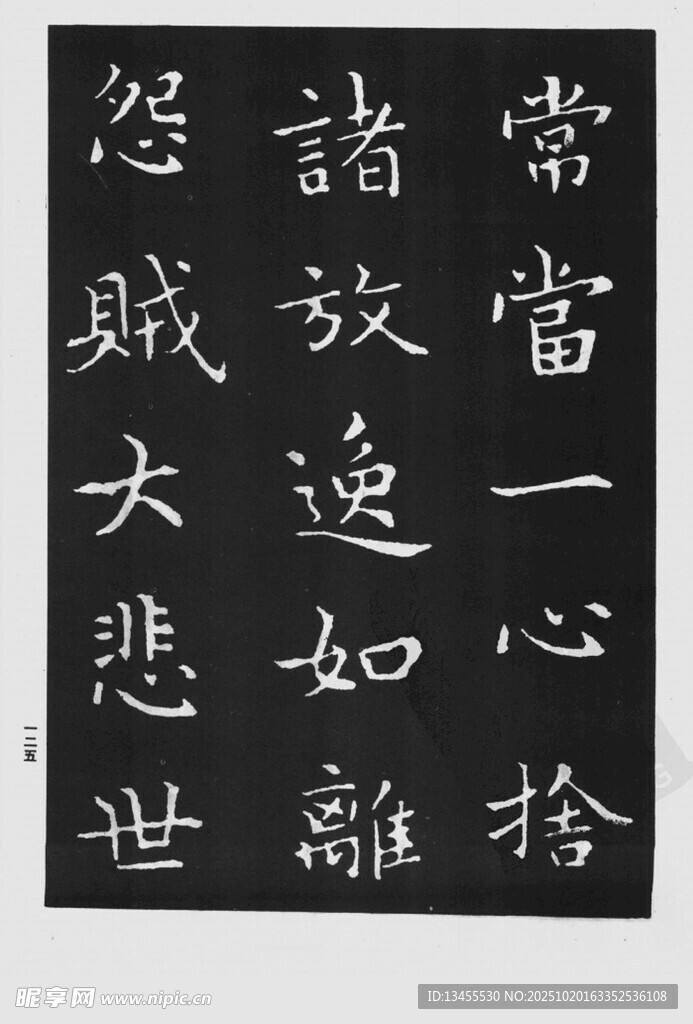 常當一心捨
諸放逸如離
怨賊大悲世
一二五
昵享网 www.nipic.cn
ID:13455530 NO:20251020163352536108